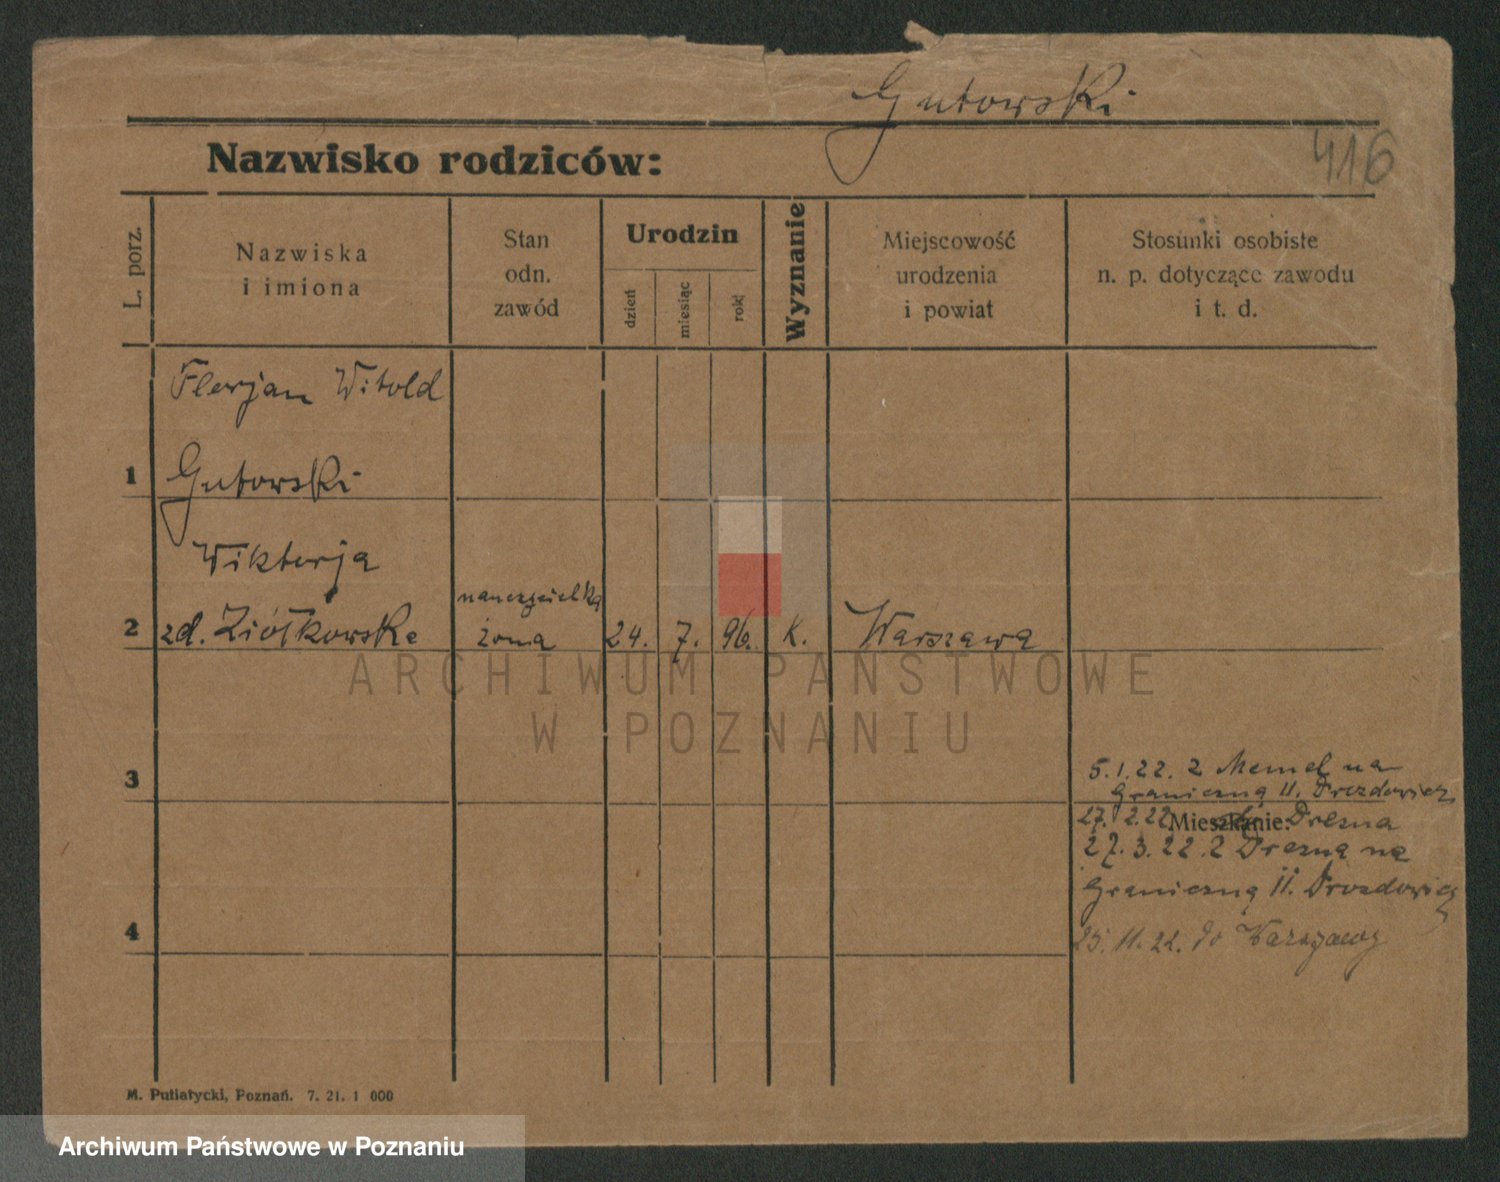 Gutowski
416
Nazwisko rodziców:
L. porz.
Nazwiska
i imiona
Stan
odn.
zawód
Urodzin
dzień
miesiąc
rok
Wyznanie
Miejscowość
urodzenia
i powiat
Stosunki osobiste
n. p. dotyczące zawodu
i t. d.
Florjan Witold
1 Gutowski
Wiktorja nauczycielka
2 zd. Ziółkowska żona 24. 7. 96. K. Warszawa
ARCHIWUM PAŃSTWOWE
W POZNANIU
5.1.22. z Memel na
3 Graniczną 11. Drozdowicz
27. 2.22 Mieszkanie: Drezna
27.3.22. z Drezna na
Graniczną 11. Drozdowicz
4 25. 11. 22. do Warszawy
M. Putiatycki, Poznań. 7. 21. 1 000
Archiwum Państwowe w Poznaniu